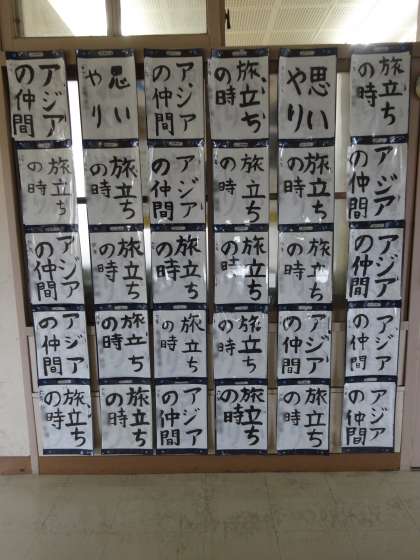 アジア
の仲間
思い
やり
アジア
の仲間
旅立ち
の時
思い
やり
旅立ち
の時
旅立ち
の時
旅立ち
の時
アジア
の仲間
旅立ち
の時
旅立ち
の時
アジア
の仲間
アジア
の仲間
旅立ち
の時
旅立ち
の時
旅立ち
の時
旅立ち
の時
アジア
の仲間
アジア
の仲間
旅立ち
の時
旅立ち
の時
旅立ち
の時
アジア
の仲間
アジア
の仲間
旅立ち
の時
旅立ち
の時
アジア
の仲間
旅立ち
の時
旅立ち
の時
アジア
の仲間